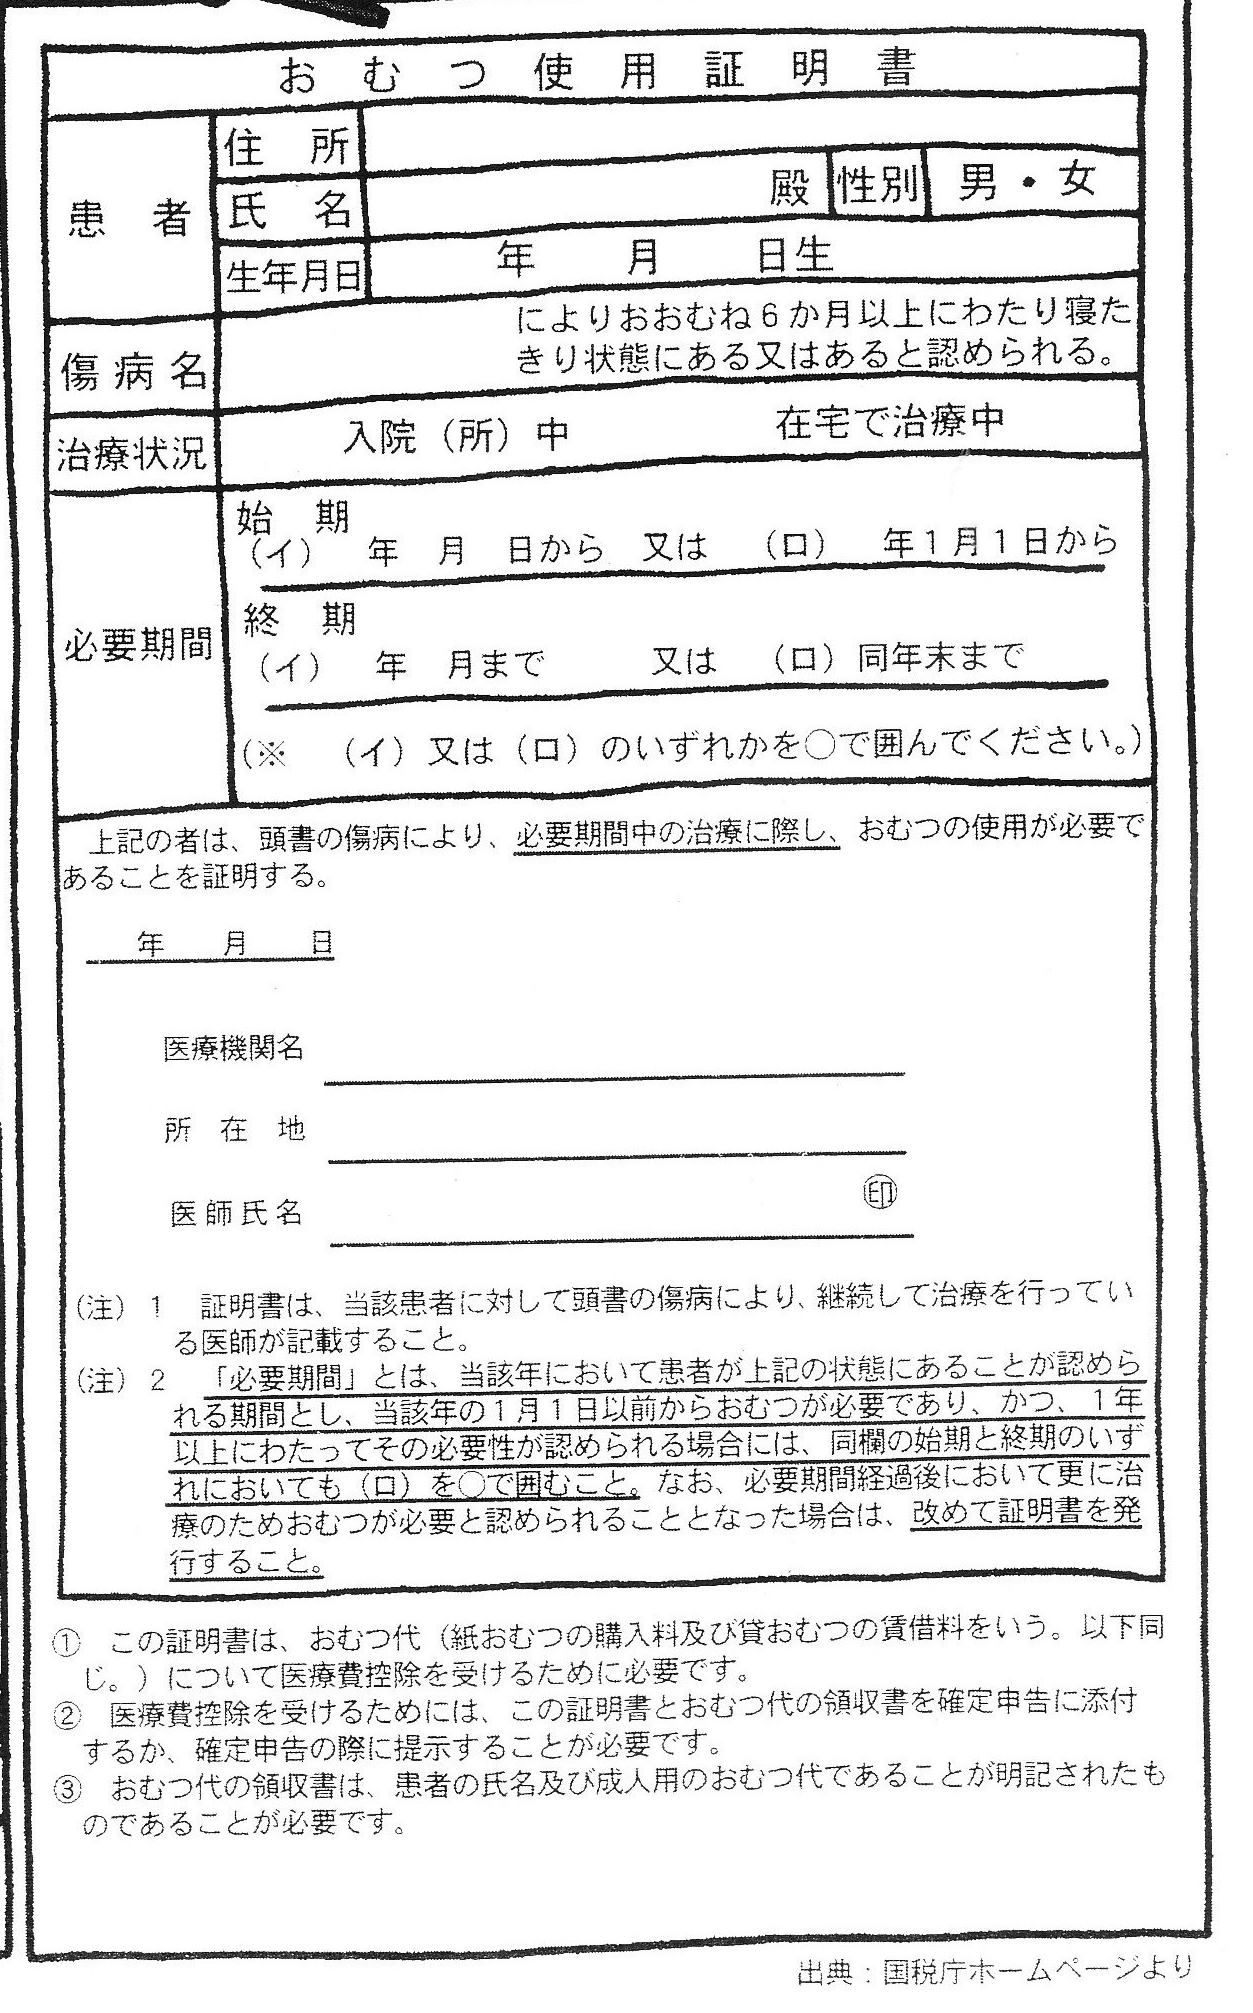 おむつ使用証明書
患者
住所
氏名 殿 性別 男・女
生年月日 年 月 日生
傷病名
によりおおむね6か月以上にわたり寝た
きり状態にある又はあると認められる。
治療状況 入院（所）中 在宅で治療中
必要期間
始期
（イ） 年 月 日から 又は （ロ） 年1月1日から
終期
（イ） 年 月まで 又は （ロ）同年末まで
（※ （イ）又は（ロ）のいずれかを○で囲んでください。）
上記の者は、頭書の傷病により、必要期間中の治療に際し、おむつの使用が必要で
あることを証明する。
年 月 日
医療機関名
所在地
医師氏名 ㊞
（注）1 証明書は、当該患者に対して頭書の傷病により、継続して治療を行ってい
る医師が記載すること。
（注）2 「必要期間」とは、当該年において患者が上記の状態にあることが認めら
れる期間とし、当該年の1月1日以前からおむつが必要であり、かつ、1年
以上にわたってその必要性が認められる場合には、同欄の始期と終期のいず
れにおいても（ロ）を○で囲むこと。なお、必要期間経過後において更に治
療のためおむつが必要と認められることとなった場合は、改めて証明書を発
行すること。
① この証明書は、おむつ代（紙おむつの購入料及び貸おむつの賃借料をいう。以下同
じ。）について医療費控除を受けるために必要です。
② 医療費控除を受けるためには、この証明書とおむつ代の領収書を確定申告に添付
するか、確定申告の際に提示することが必要です。
③ おむつ代の領収書は、患者の氏名及び成人用のおむつ代であることが明記されたも
のであることが必要です。
出典：国税庁ホームページより